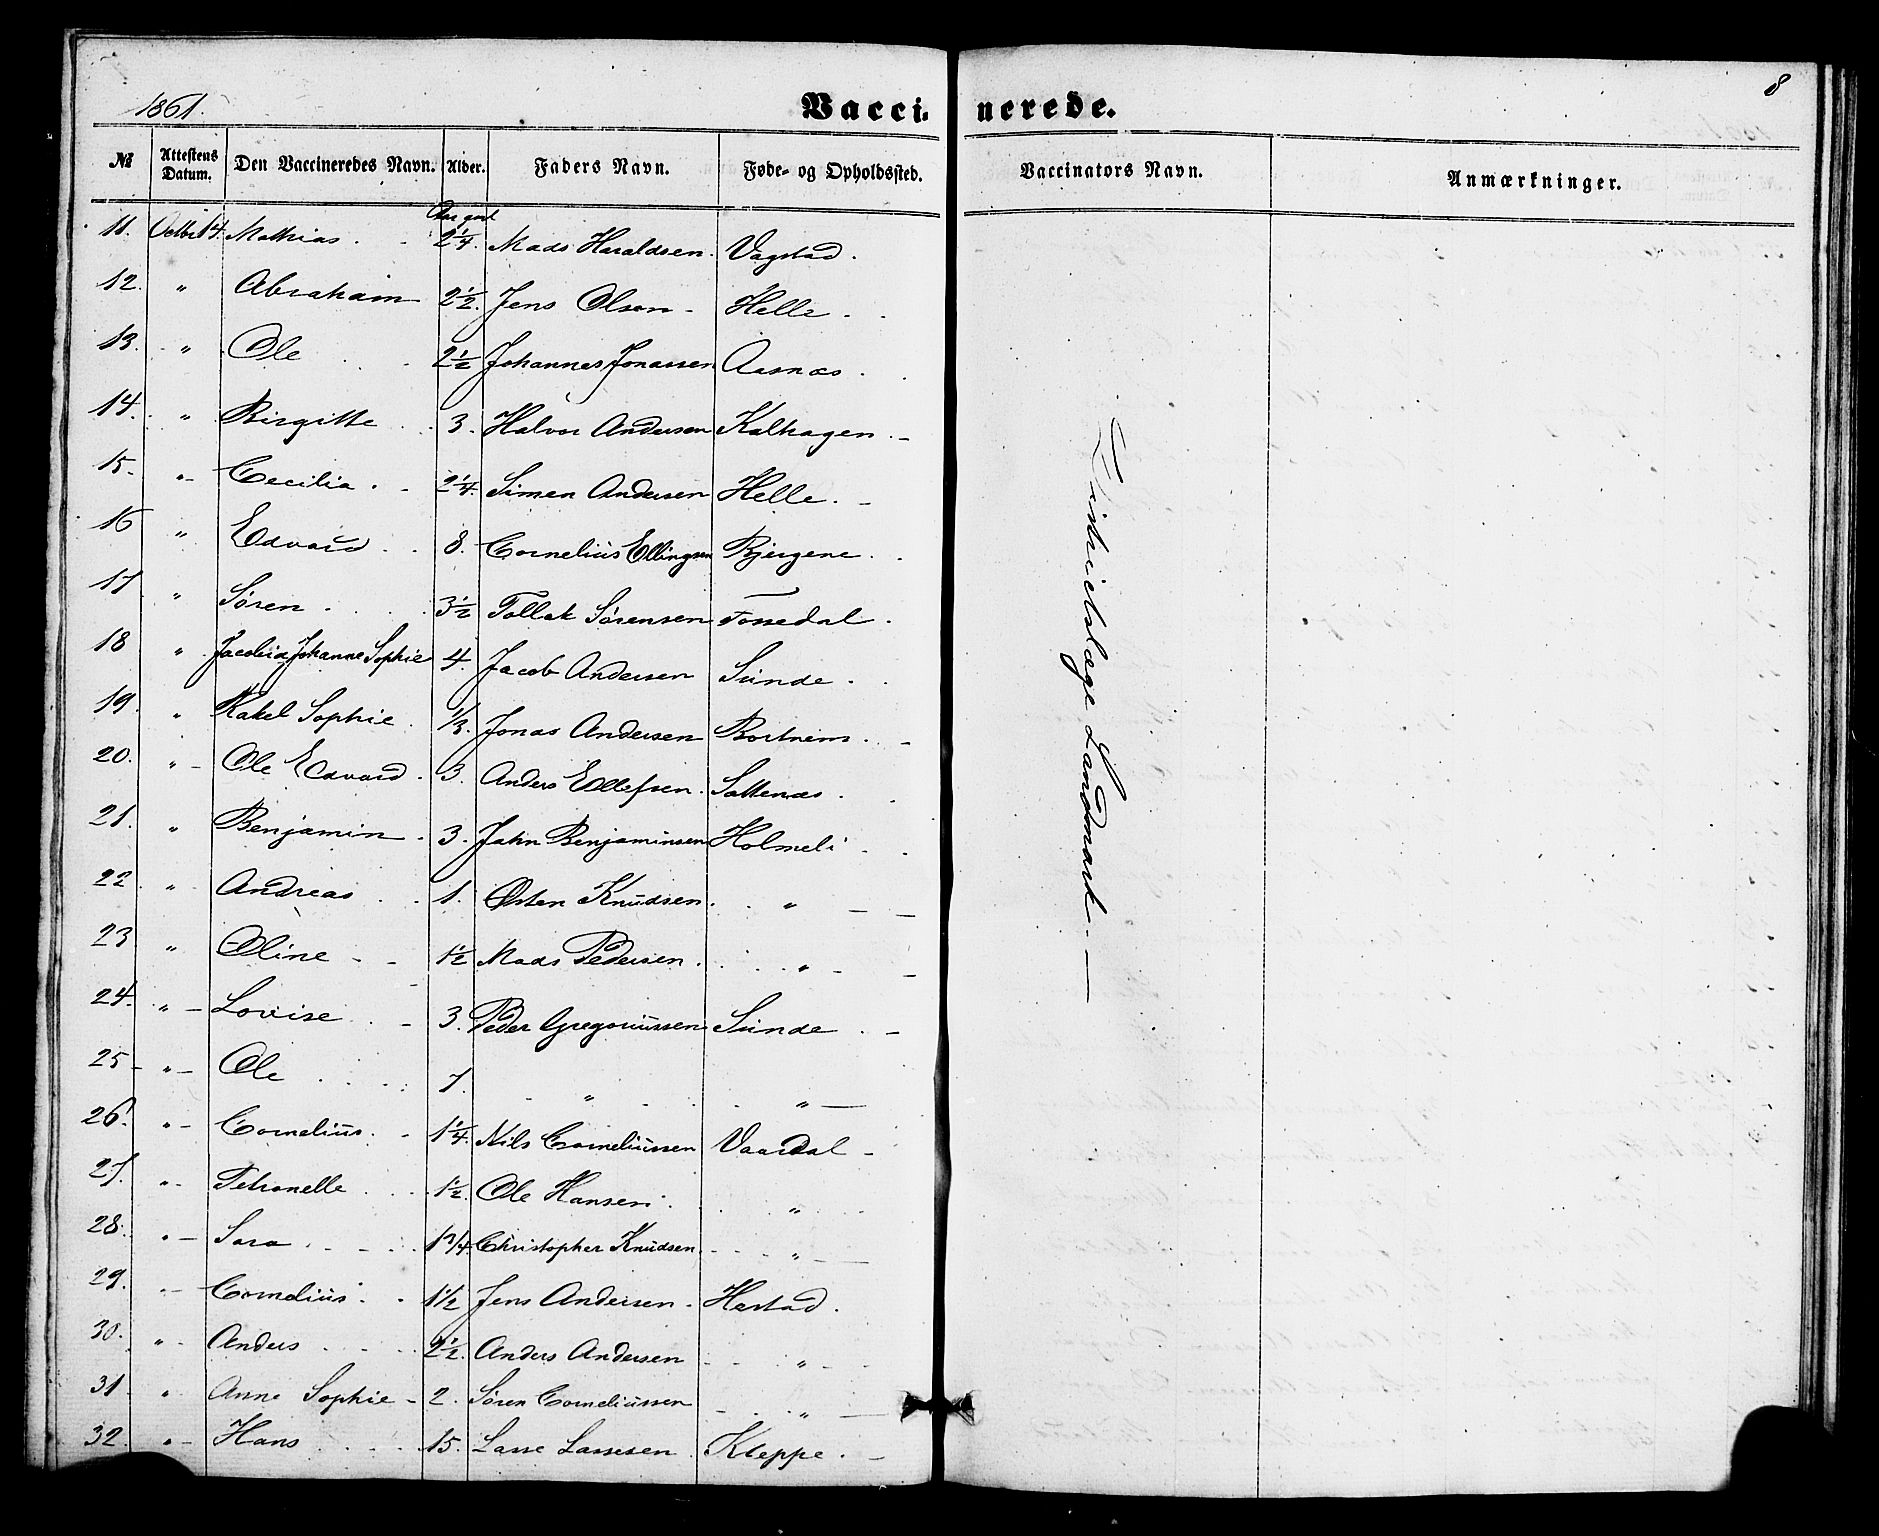 1861.
Vaccinerede.
8
№ Attestens Datum. Den Vaccineredes Navn. Alder. Faders Navn. Føde- og Opholdssted. Vaccinators Navn. Anmærkninger.
11. Octbr 14. Mathias. 2 1/4. Mads Haraldsen. Vagstad.
12. " Abraham 2 1/2. Jens Olsen Helle.
13. " Ole 2 1/2 Johannes Jonassen Aasnæs.
14. " Birgitte 3. Halvor Andersen Kalhagen.
15. " Cecilia. 2 1/4. Simen Andersen Helle.
16 " Edvard 8. Cornelius Ellingsen Bjergene.
17. " Søren 3 1/2 Tollak Sørensen Fossedal.
18 " Jacobia Johanne Sophie 4. Jacob Andersen Sunde.
19. " Rakel Sophie. 1/3. Jonas Andersen Bortnem.
20. " Ole Edvard. 3. Anders Ellefsen. Sottenæs.
21. " Benjamin 3. John Benjaminsen Holmeli
22 " Andreas 1. Østen Knudsen. "
23 " Oline 1 1/2 Mads Pedersen. "
24. " Lovise 3. Peder Gregoriussen Sunde
25 " Ole 7. " "
26. " Cornelius. 1 1/4. Nils Corneliussen Vaardal
27. " Petronelle 1 1/2. Ole Hansen "
28. " Sara 1 3/4 Christopher Knudsen. "
29. " Cornelius. 1 1/2 Jens Andersen Hestad.
30. " Anders 2 1/2. Anders Andersen "
31. " Anne Sophie 2. Søren Corneliussen "
32. " Hans 15. Lasse Lassesen Kleppe.
Districtslæge Landmark.